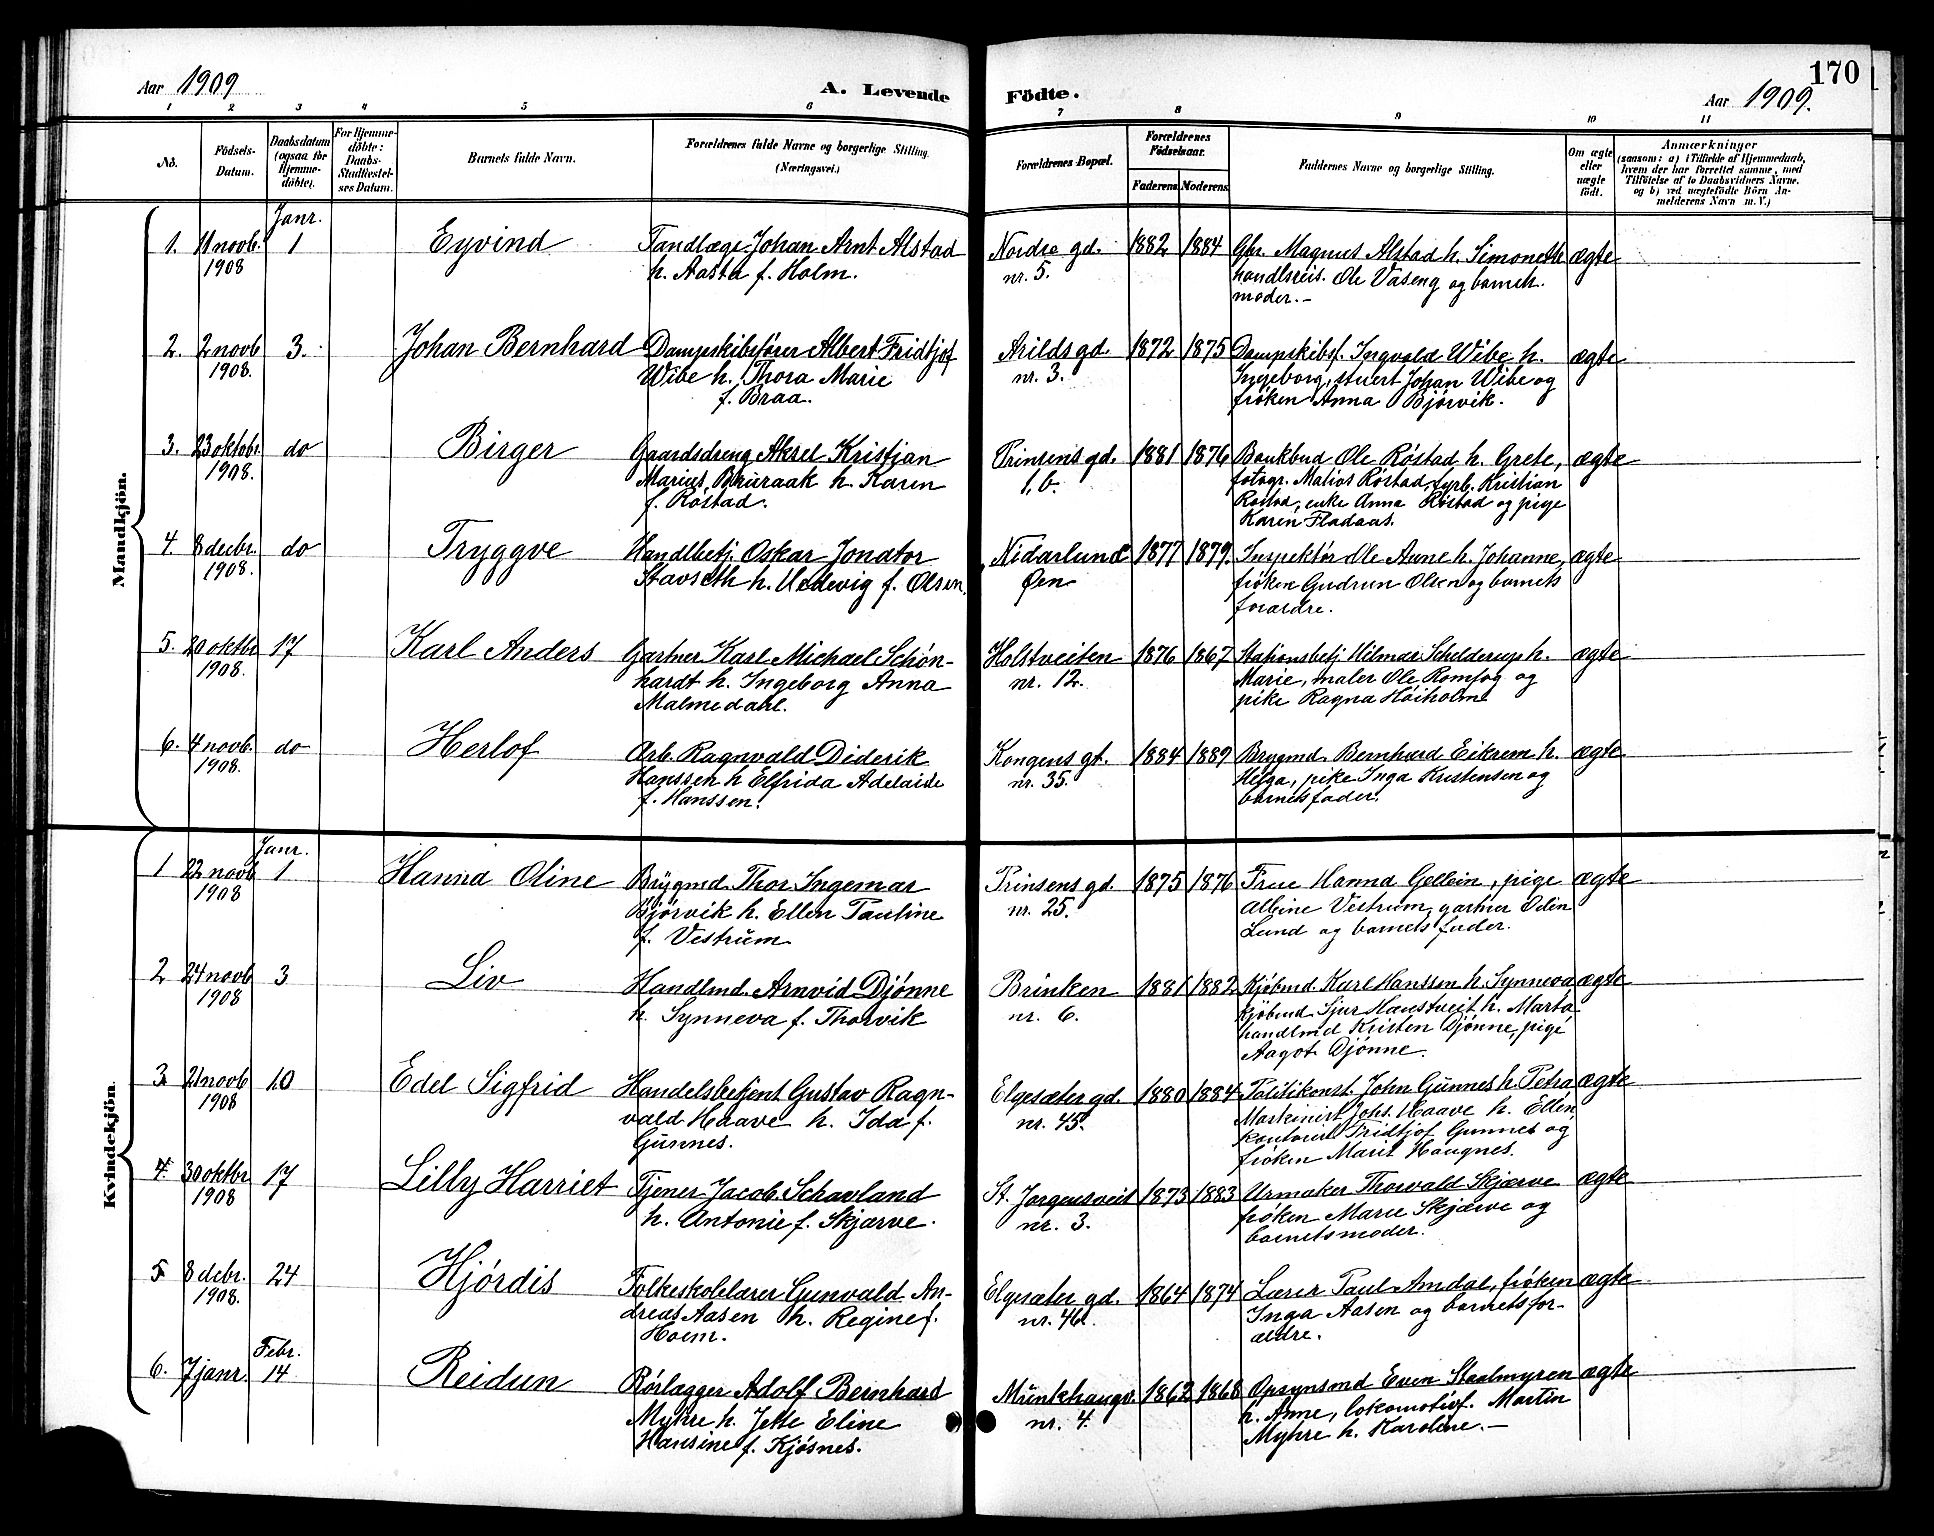 Aar 1909
A. Levende
Födte.
170
Aar 1909.
1 2 3 4 5 6 7 8 9 10 11
No.
Födsels-Datum.
Daabsdatum (ogsaa for Hjemme-döbte).
For Hjemme-döbte: Daabs-Stadfæstel-ses Datum.
Barnets fulde Navn.
Forældrenes fulde Navne og borgerlige Stilling. (Næringsvei.)
Forældrenes Bopæl.
Forældrenes Födselsaar.
Faderens. Moderens.
Faddernes Navne og borgerlige Stilling.
Om ægte eller uægte födt.
Anmærkninger
(saasom: a) i Tilfælde af Hjemmedaab,
hvem der har forrettet samme, med
Tilföielse af to Daabsvidners Navne,
og b) ved uægtefödte Börn An-
melderens Navn m. V.)
Mandkjön.
Janr.
1. 11 novb. 1 Eyvind Tandlæge Johan Arnt Alstad Nordre gd. 1882 1884 Gbr. Magnus Alstad h. Simoneth ægte
1908 h. Aasta f. Holm. nr. 5. handlsreis. Ole Vaseng og barnets
moder.-
2. 2 novb 3. Johan Bernhard Dampskibsfører Albert Fridtjof Arilds gd. 1872 1875 Dampskibsf. Ingvald Wibe h. ægte
1908. Wibe h. Thora Marie nr. 3. Ingeborg, stuert Johan Wibe og
f. Braa. frøken Anna Bjørvik.
3. 23 oktobr. do Birger Gaardsdreng Aksel Kristjan Prinsens gd. 1881 1876 Bankbud Ole Røstad h. Grete, ægte
1908. Marius Bruraak h. Karen 1, b. fotogr. Matios Røstad, fyrb. Kristian
f. Røstad. Røstad, enke Anna Røstad og pige
Karen Fladaas.
4. 8 decbr. do Tryggve Handlbetj. Oskar Jonator Nidarlund 1877 1879. Inspektør Ole Aune h. Johanne, ægte
1908. Stavseth h. Hedevig f. Olsen. Øen frøken Gudrun Olsen og barnets
forældre.
5. 20 oktbr 17 Karl Anders Gartner Karl Michael Schøn- Holstveiten 1876 1867 Stationsbetj. Hilmar Schelderup h. ægte
1908. hardt h. Ingeborg Anna nr. 12. Marie, maler Ole Romfog og
Malmedahl. pike Ragna Høiholm
6. 4 novb. do Herlof Arb. Ragnvald Diderik Kongens gt. 1884 1889 Brygmd. Bernhard Eikrem h. ægte
1908. Hanssen h Elfrida Adelaide nr. 35. Helga, pike Inga Kristensen og
f. Hanssen. barnets fader.
Kvindekjön.
Janr.
1 22 novb 1 Hanna Oline Brygmd. Thor Ingemar Prinsens gd. 1875 1876 Frue Hanna Gellein, pige ægte
1908 Bjørvik h. Ellen Pauline nr. 25. Albine Vestrum, gartner Odin
f. Vestrum. Lund og barnets fader.
2 24 novb 3 Liv Handlmd. Arnvid Djønne Brinken 1881 1882 Kjøbmd Karl Hanssen h. Synneva ægte
1908 h. Synneva f. Thorvik nr. 6. Kjøbmd Sjur Haustveit h. Marta
handlmd Kristen Djønne, pige
Aagot Djønne.
3 21 novb 10 Edel Sigfrid Handelsbetjent Gustav Ragn- Elgesæter gd. 1880 1884 Politikonst. John Gunnes h. Petra ægte
1908 vald Haave h. Ida f. nr. 45. Maskinist Johs. Haave h. Ellen,
Gunnes. kontorist Fridtjof Gunnes og
frøken Marit Haugnes.
4. 30 oktbr 17 Lilly Harriet Tjener Jacob Schavland St. Jørgensveit 1873 1883 Urmaker Thorvald Skjærve ægte
1908 h. Antonie f. Skjærve. nr. 3. frøken Marie Skjærve og
barnets moder.
5 8 dcbr. 24 Hjørdis Folkeskolelærer Gunvald An- Elgesæter gd. 1864 1874 Lærer Paul Amdal, frøken ægte
1908. dreas Aasen h. Regine f. nr. 46. Inga Aasen og barnets for-
Hoem. ældre.
Febr.
6. 7 janr. 14 Reidun Rørlægger Adolf Bernhard Munkhaugv. 1862 1868 Opsynsmd Even Staalmyren ægte
Myhre h. Jette Eline nr. 4. h. Anne, lokomotivf. Martin
Hansine f. Kjøsnes. Myhre h. Karoline.-